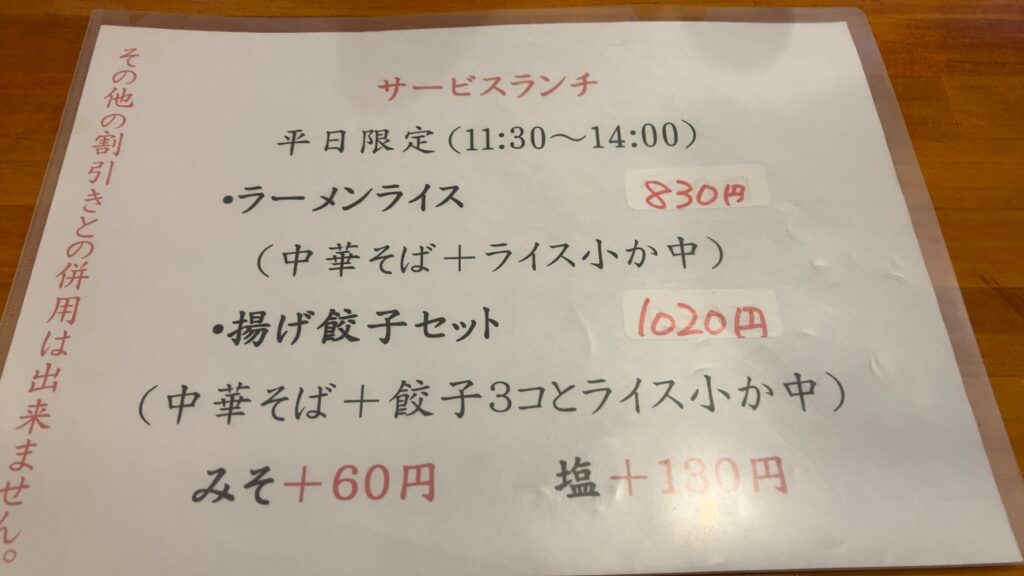 サービスランチ
平日限定（11:30～14:00）
・ラーメンライス 830円
（中華そば＋ライス小か中）
・揚げ餃子セット 1020円
（中華そば＋餃子3コとライス小か中）
みそ＋60円 塩＋130円
その他の割引きとの併用は出来ません。